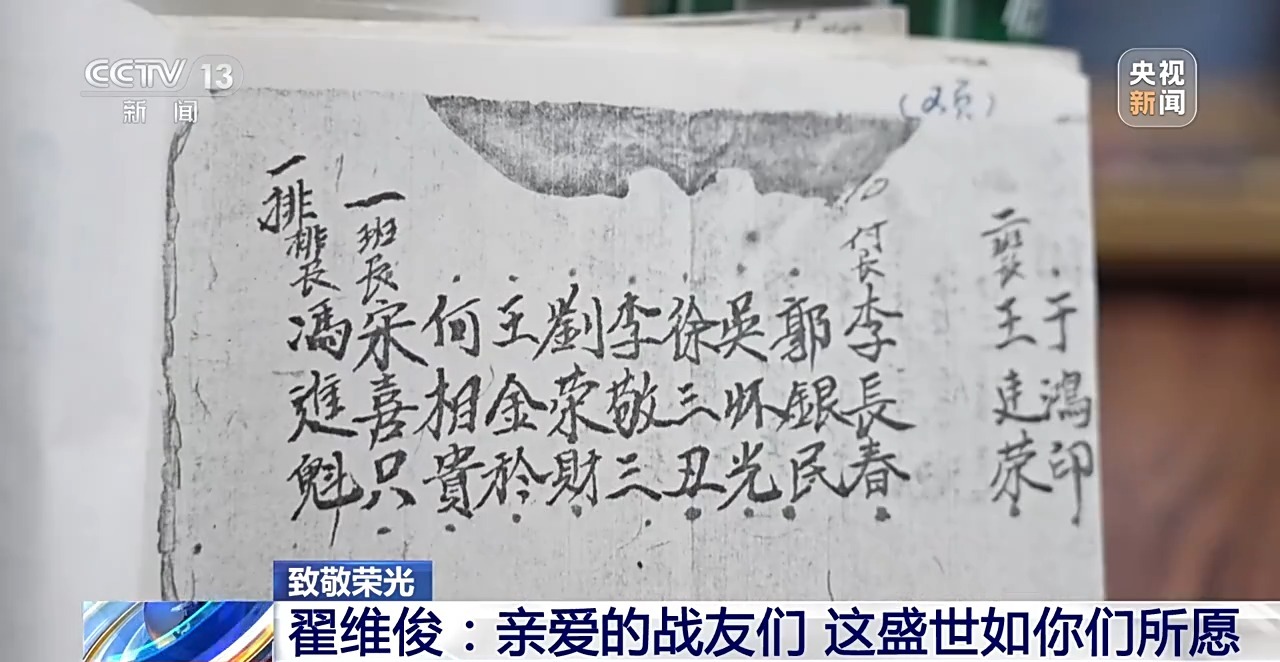 CCTV 13
新闻
央视
新闻
一排
排长
馮進魁
一班长
宋喜只
何相貴
王金矜
劉荣財
李敬三
徐三丑
吳怀光
郭銀民
付长
李長春
二班长
王建荣
于鴻印
致敬荣光
翟维俊：亲爱的战友们 这盛世如你们所愿